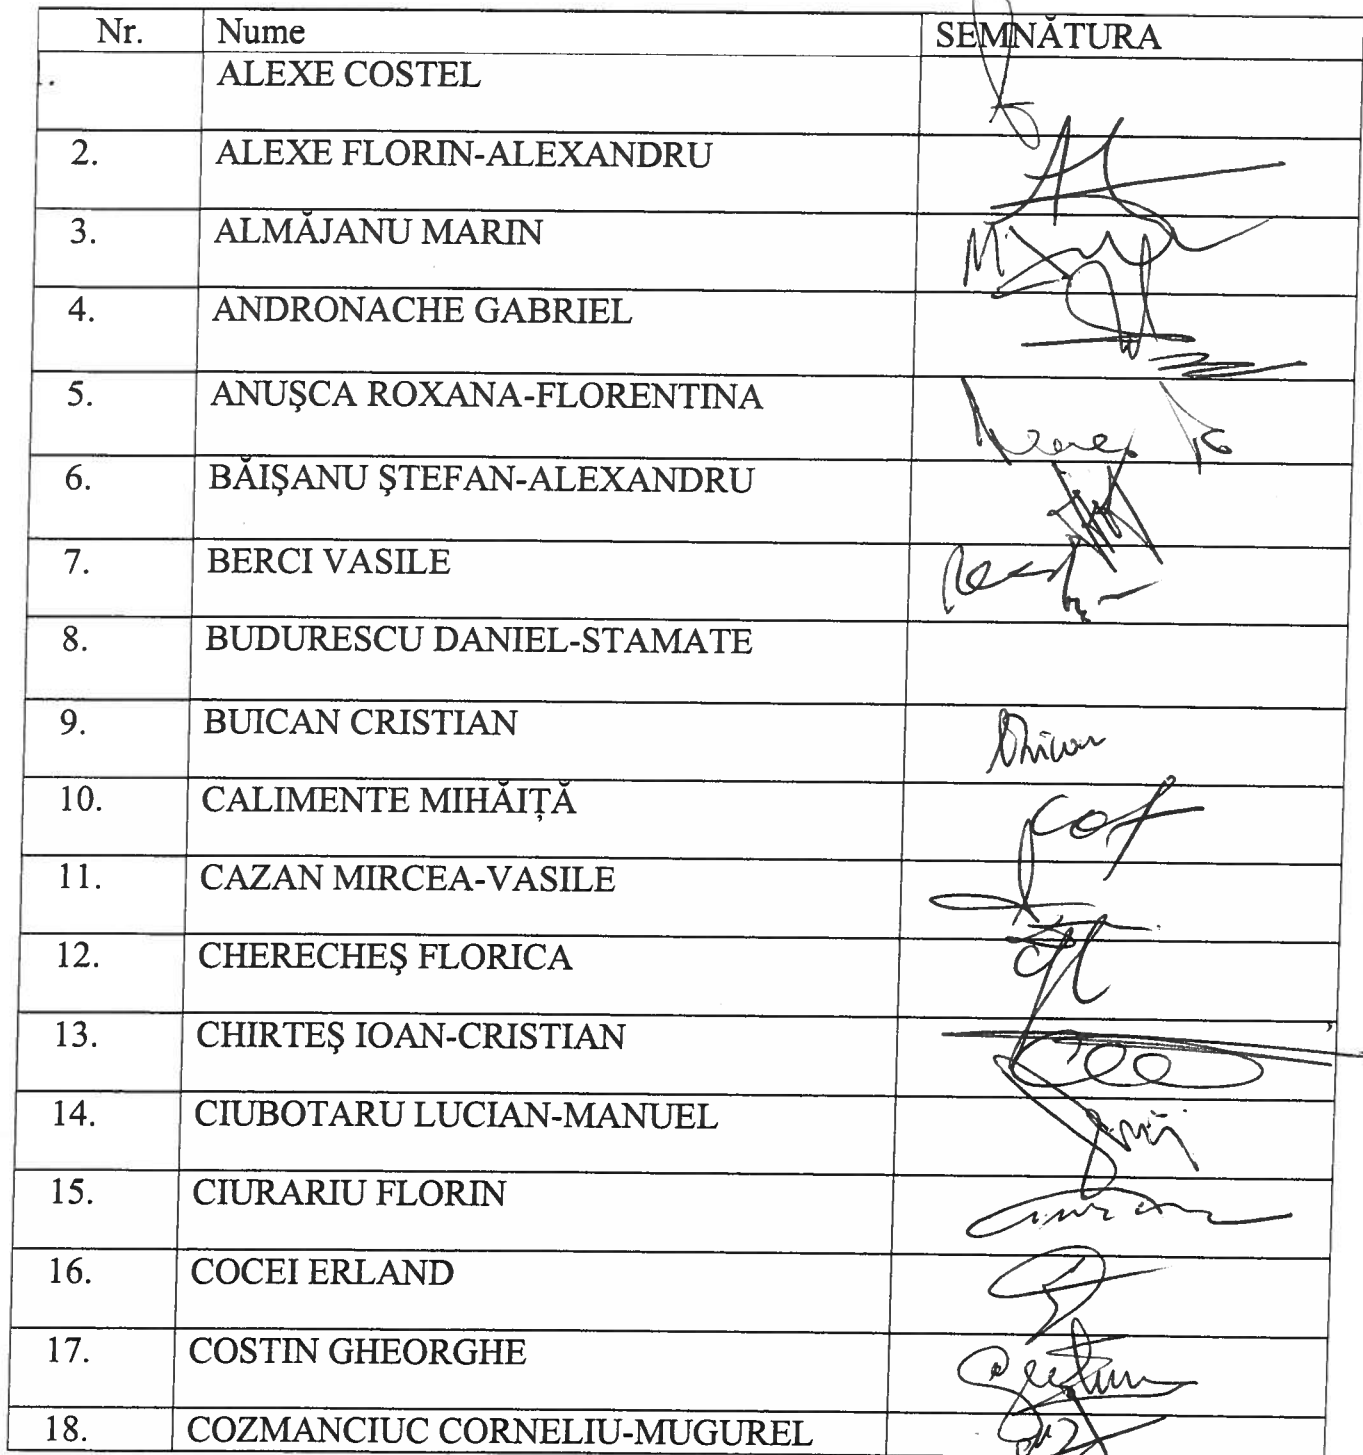 Nr. Nume SEMNĂTURA
. ALEXE COSTEL
2. ALEXE FLORIN-ALEXANDRU
3. ALMĂJANU MARIN
4. ANDRONACHE GABRIEL
5. ANUŞCA ROXANA-FLORENTINA
6. BĂIŞANU ŞTEFAN-ALEXANDRU
7. BERCI VASILE
8. BUDURESCU DANIEL-STAMATE
9. BUICAN CRISTIAN
10. CALIMENTE MIHĂIȚĂ
11. CAZAN MIRCEA-VASILE
12. CHERECHEŞ FLORICA
13. CHIRTEŞ IOAN-CRISTIAN
14. CIUBOTARU LUCIAN-MANUEL
15. CIURARIU FLORIN
16. COCEI ERLAND
17. COSTIN GHEORGHE
18. COZMANCIUC CORNELIU-MUGUREL